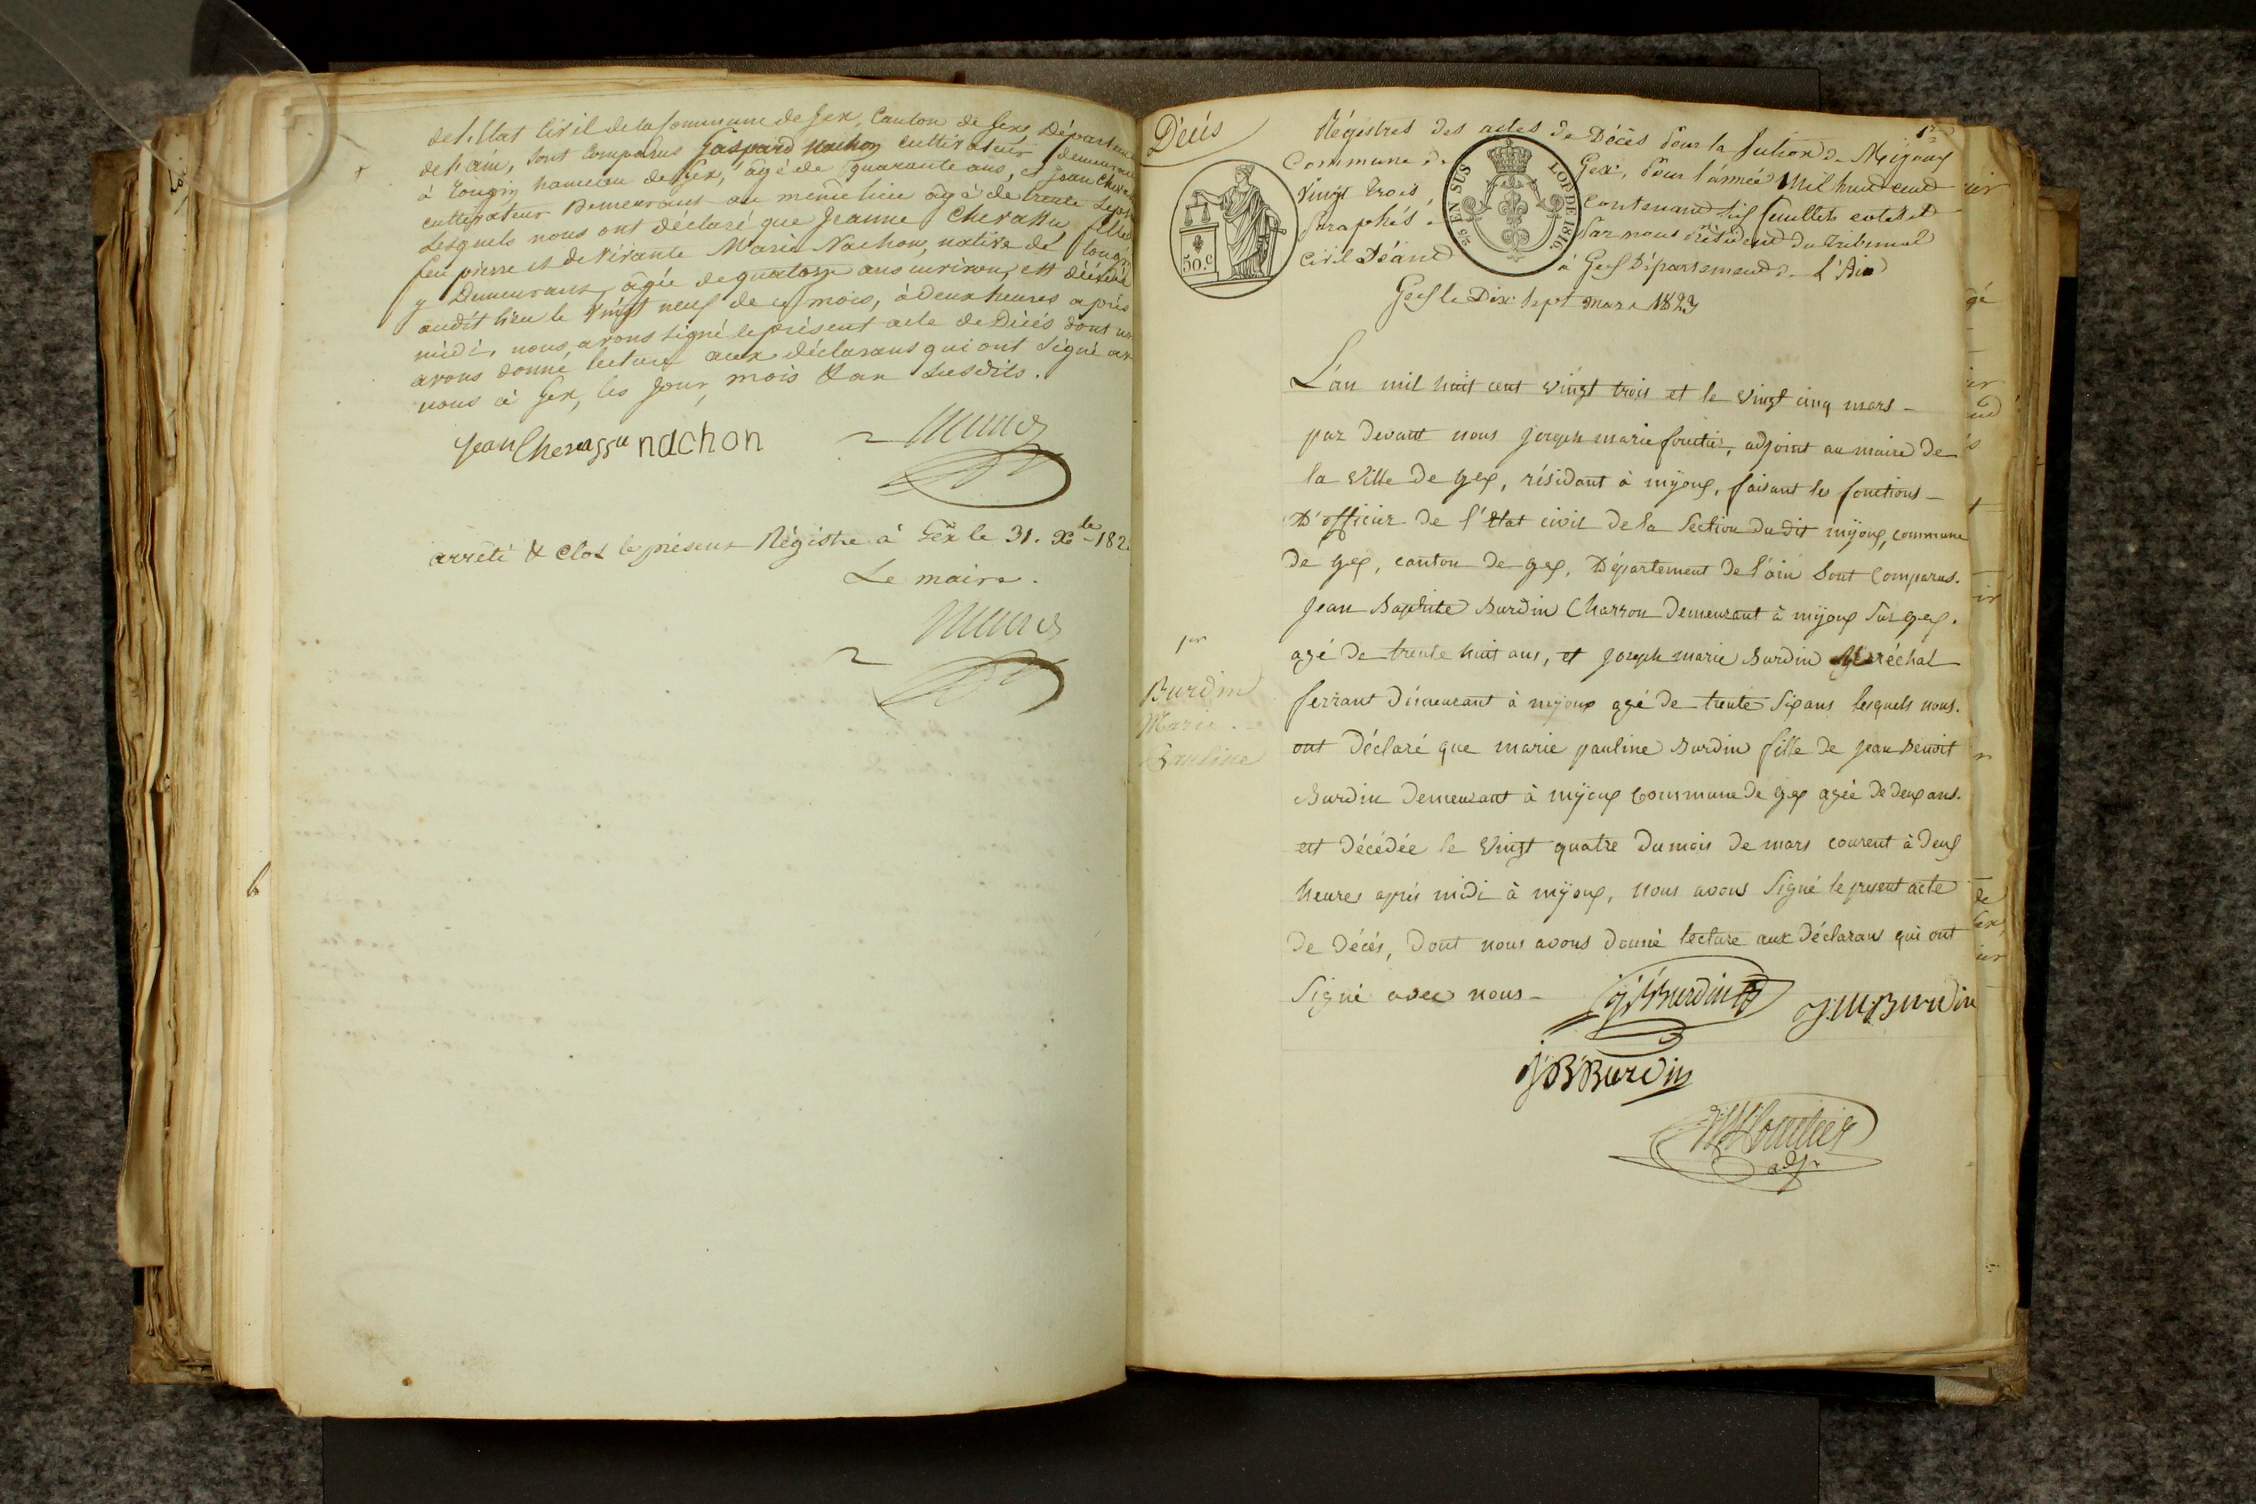 de l'Etat Civil de la Commune de Gex, Canton de Gex, Départem
de l'ain, sont comparus Gaspard Nachon cultivateur demeurant
à tougin hameau de Gex, âgé de quarante ans, et Jean Chev
cultivateur Demeurant au même lieu âgé de trente sept
lesquels nous ont déclaré que Jeanne Chevassu, fille
feu pierre et de vivante Marie Nachon, native de tougin
y Demeurant, âgée de quatorze ans environ, est décédée
audit lieu le vingt neuf de ce mois, à deux heures après
midi, nous avons signé le présent acte de Décès dont
avons donné lecture aux déclarans qui ont signé
nous à Gex, les Jour, mois & an susdits.
Jean Chevassu nachon
arrêté & clos le présent Régistre à Gex le 31. Xbre 182
Le maire.
Décès
1r
Régistres des actes de Décès pour la section de Mijoux
Commune de Gex, pour l'année Mil huit cent
vingt trois contenant six feuillets cotés et
paraphés par nous Président du Tribunal
civil séant à Gex Département de L'Ain
Gex le Dix sept mars 1823
50.c
EN SUS
LOI DE 1816.
L'an mil huit cent vingt trois et le vingt cinq mars -
par devant nous Joseph marie foutier, adjoint au maire de
la ville de gex, résidant à mijoux, faisant les fonctions -
D'officier de l'état civil de la section du dit mijoux, commune
de gex, canton de gex, Département de l'ain sont comparus.
Jean Baptiste Burdin Charron demeurant à mijoux sur gex.
agé de trente huit ans, et Joseph marie Burdin Maréchal
ferrant démeurant à mijoux agé de trente six ans lesquels nous.
ont Déclaré que marie pauline Burdin fille de Jean Benoit
Burdin demeurant à mijoux Commune de gex agée de deux ans.
est décédée le vingt quatre du mois de mars courent à deux
heures après midi à mijoux, nous avons signé le present acte
de décès, dont nous avons donné lecture aux déclarans qui ont
signé avec nous -
1er
Burdin
Marie
Pauline
J. B Burdin
J. M. Burdin
J B Burdin
J M foutier
adjt